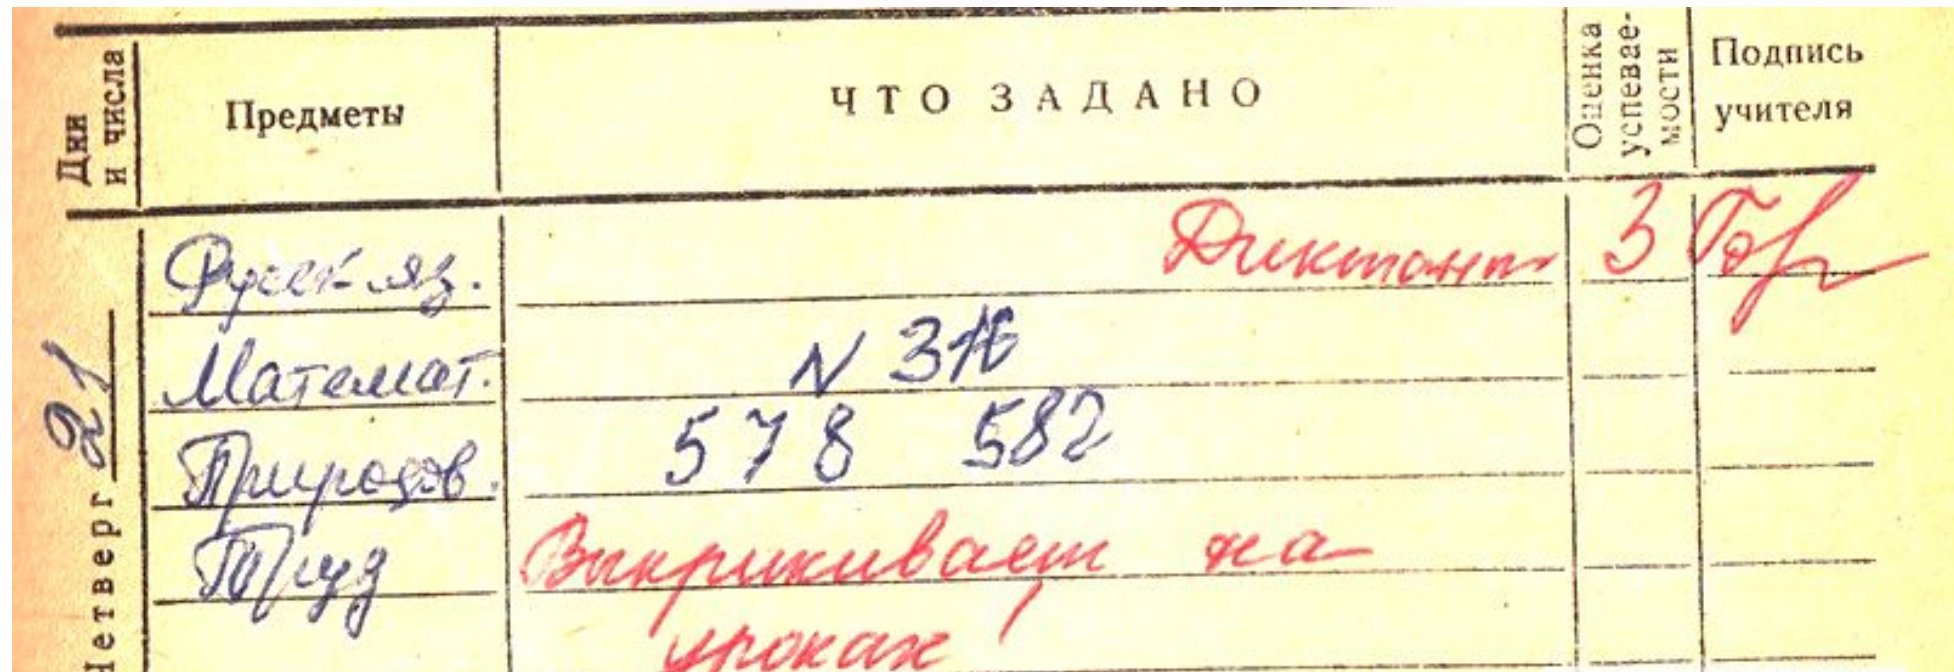 Дни и числа Предметы ЧТО ЗАДАНО Оценка успеваемости Подпись учителя
Четверг 21
Русск. яз. Диктант 3
Математ. N 316
Природов. 578 582
Труд Выкрикивает на
уроках